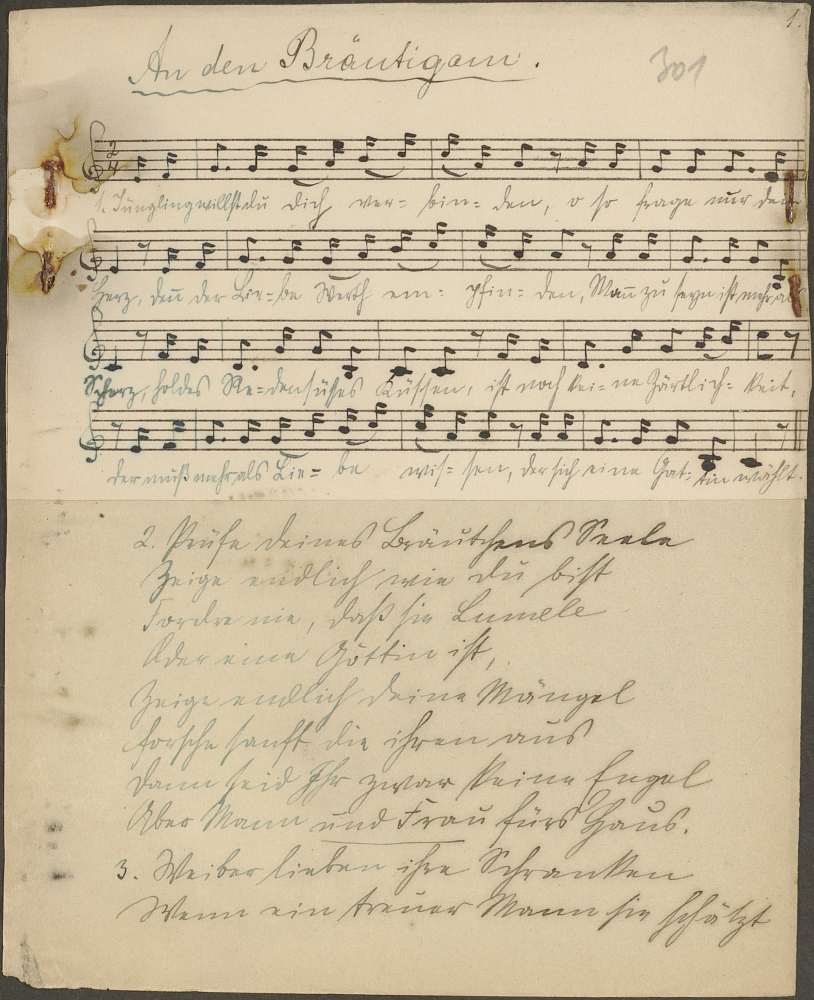 1.
An den Bräutigam.
301
1. Jüngling willst du dich ver- bin- den, o so frage nur dein
Herz, denn der Lie- be Werth em- pfin- den, Mann zu seyn ist mehr als
Scherz, holdes Re- den süßes Küssen, ist noch kei- ne Zärtlich- keit,
der muß mehr als Lie- be wis- sen, der sich eine Gat- tin wählt.
2. Prüfe deines Bräutchens Seele
Zeige endlich wie du bist
Fordre nie, daß sie
Oder eine Göttin ist,
Zeige endlich deine Mängel
forsche sanft die ihren aus
Dann seid Ihr zwar keine Engel
Aber Mann und Frau fürs Haus.
3. Weiber lieben ihre Schranken
Wenn ein treuer Mann sie schätzt